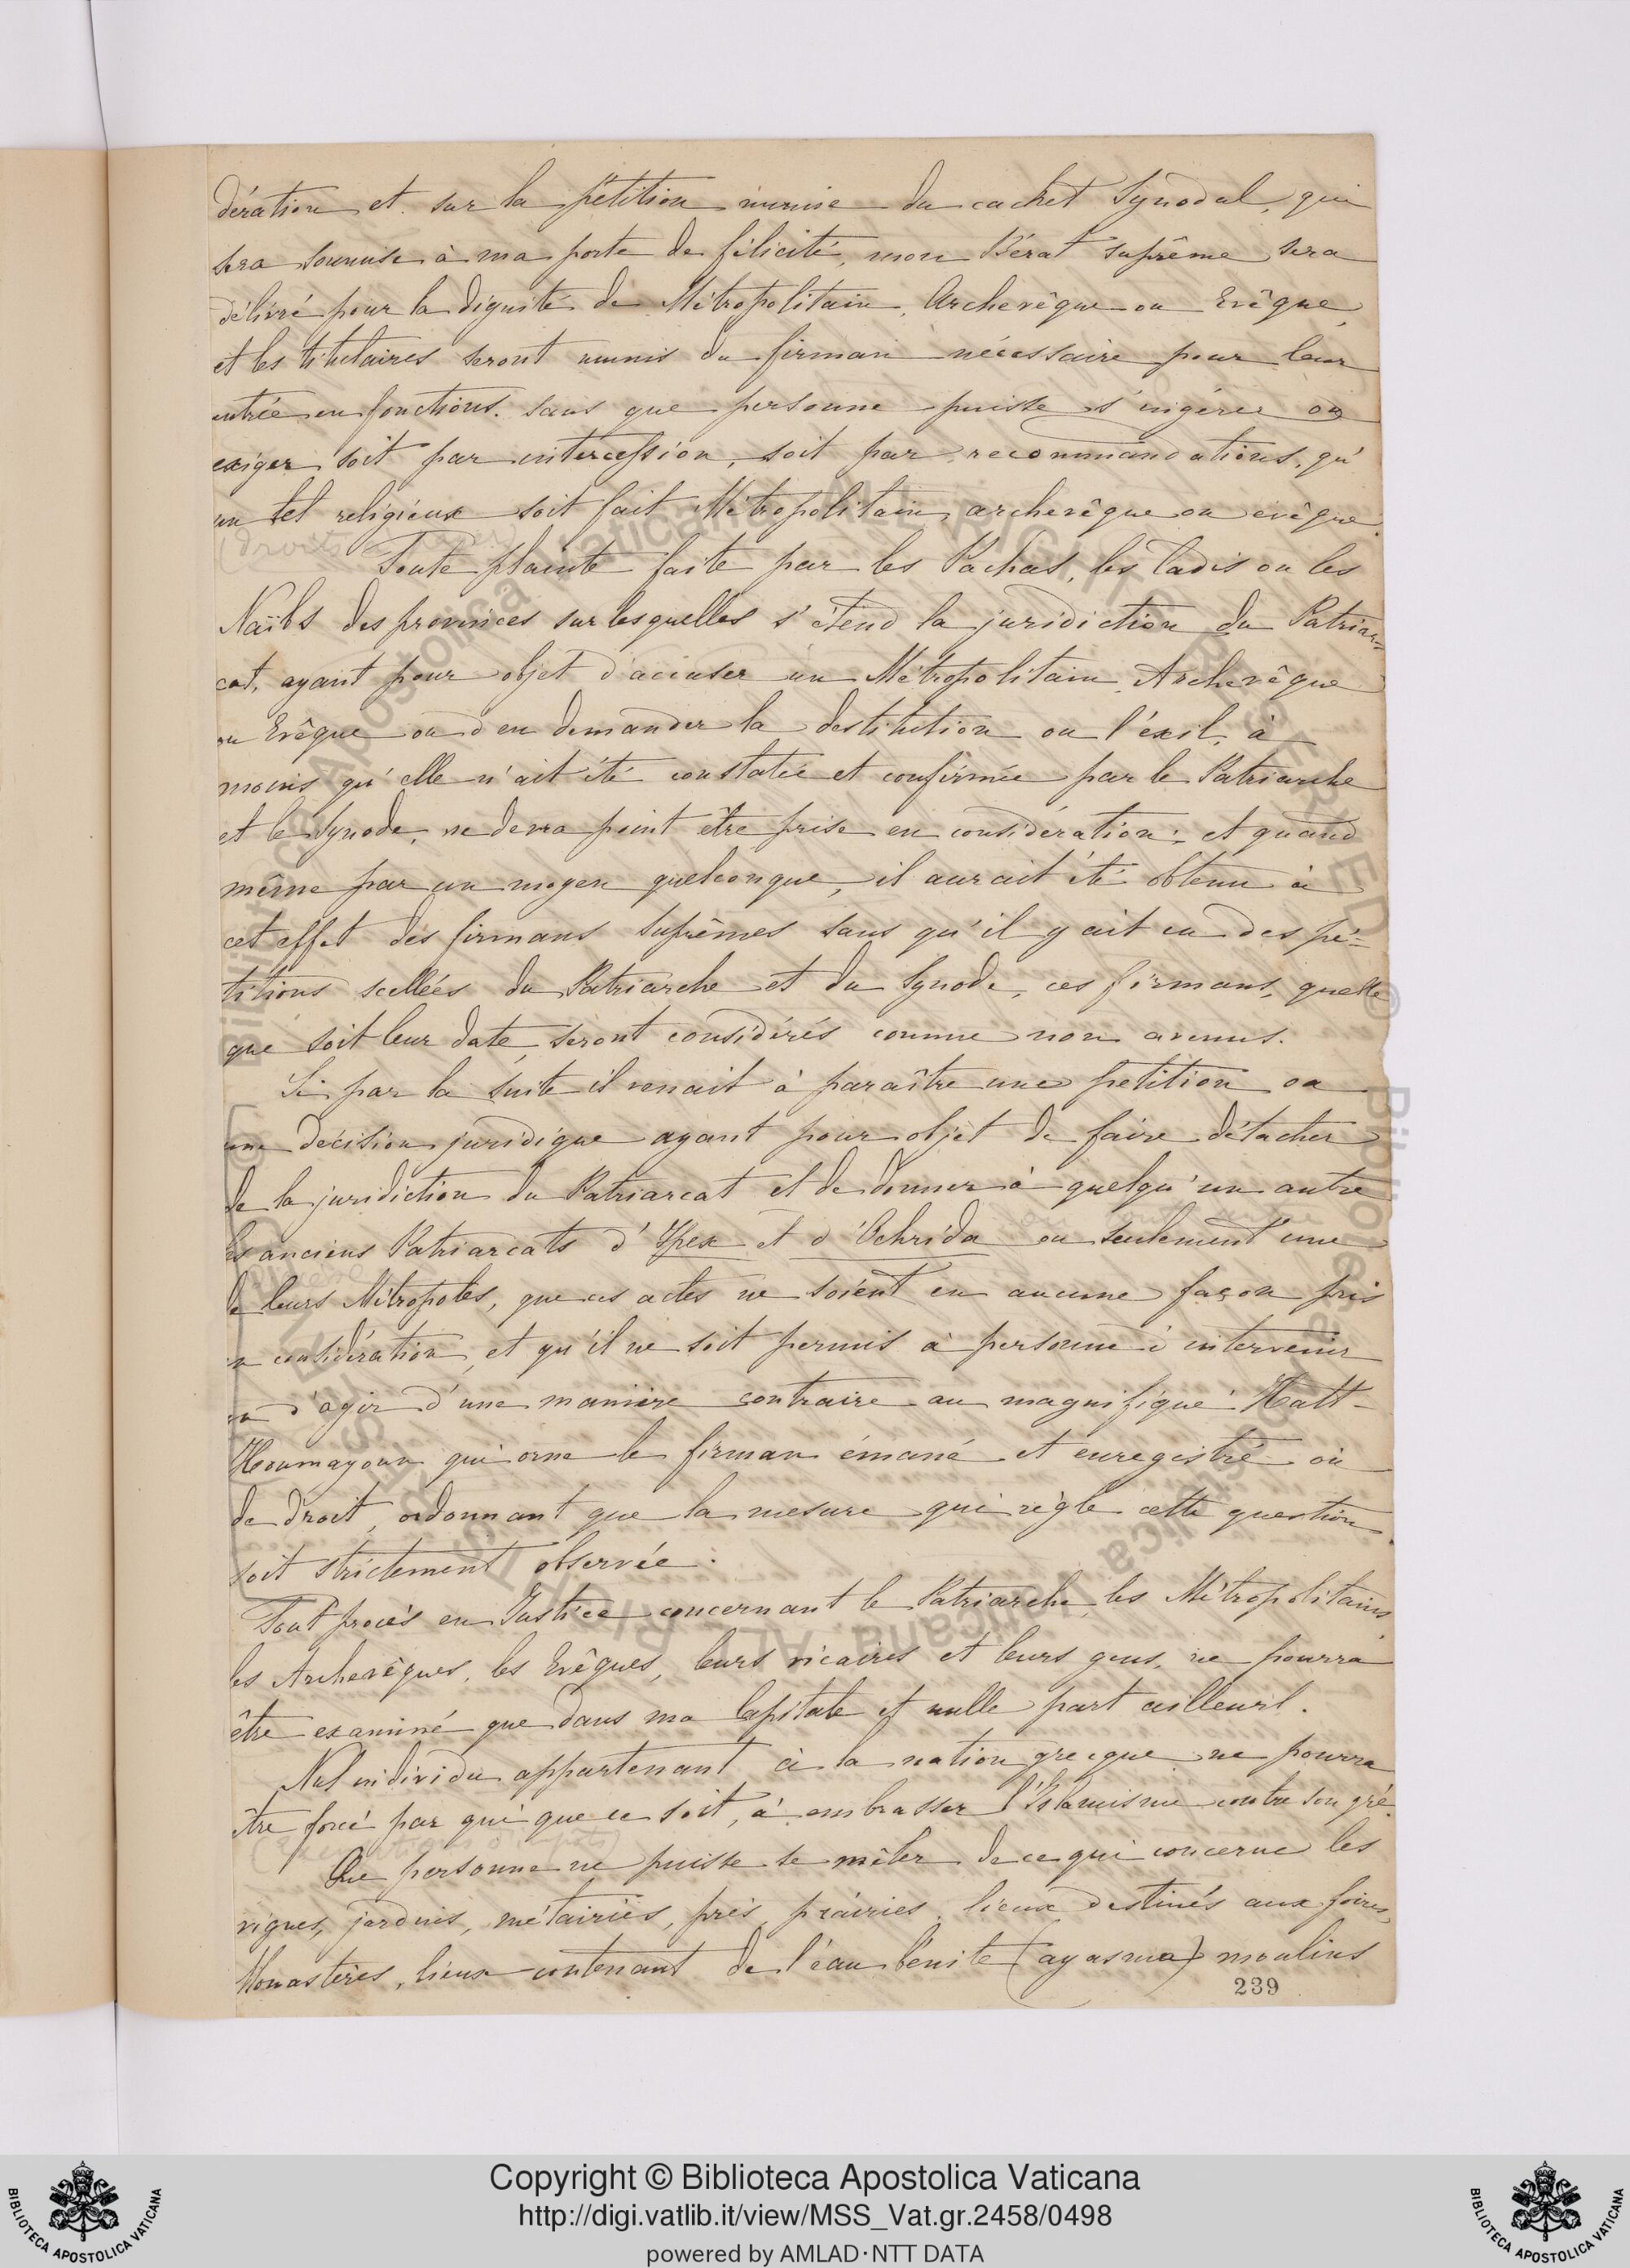 dération et sur la pétition munie du cachet Synodal, qui
sera soumise à ma porte de félicité, mon Bérat suprême sera
délivré pour la dignité de Métropolitain, Archevêque ou Evêque,
et les titulaires seront munis du firman nécessaire pour leur
entrée en fonctions. sans que personne puisse s'ingérer ou
exiger soit par intercession, soit par recommandations, qu'
un tel religieux soit fait Métropolitain, archevêque ou evêque.
(droits
Toute plainte faite par les Pachas, les Cadis ou les
Naïbs des provinces sur lesquelles s'étend la juridiction du Patriar=
cat, ayant pour objet d'accuser un Métropolitain, Archevêque
ou Evêque ou d'en demander la destitution ou l'éxil, à
moins qu'elle n'ait été constatée et confirmée par le Patriarche
et le Synode, ne devra point être prise en considération; et quand
même par un moyen quelconque, il aurait été obtenu à
cet effet des firmans suprêmes sans qu'il y ait eu des pé=
titions scellées du Patriarche et du Synode, ces firmans, quelle
que soit leur date, seront considérés comme non avenus.
Si par la suite il venait à paraître une petition ou
une décision juridique ayant pour objet de faire détacher
de la juridiction du Patriarcat et de donner à quelqu'un autre
les anciens Patriarcats d'Ypex et d'Ochrida ou seulement une
de leurs Métropoles, que ces actes ne soient en aucune façon pris
en considération, et qu'il ne soit permis à personne d'intervenir
ou d'agir d'une manière contraire au magnifique Hatt-
Houmayoun qui orne le firman émané et enregistré où
de droit, ordonnant que la mesure qui règle cette question
soit strictement observée.
Tout procès en Justice concernant le Patriarche, les Métropolitains,
les Archevêques, les Evêques, leurs vicaires et leurs gens, ne pourra
être examiné que dans ma Capitale et nulle part ailleurs.
Nul individu appartenant à la nation grecque ne pourra
être forcé par qui que ce soit, à embrasser l'Islamisme contre son gré.
Que personne ne puisse se mêler de ce qui concerne les
vignes, jardins, métairies, prés, prairies, lieux destinés aux foires,
Monastères, lieux contenant de l'eau bénite (ayasma) moulins
239
Copyright © Biblioteca Apostolica Vaticana
http://digi.vatlib.it/view/MSS_Vat.gr.2458/0498
powered by AMLAD·NTT DATA
BIBLIOTECA APOSTOLICA VATICANA
BIBLIOTECA APOSTOLICA VATICANA